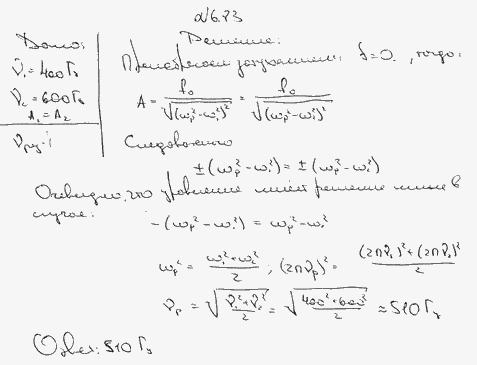 №6.83
Дано:
ν₁ = 400 Гц
ν₂ = 600 Гц
A₁ = A₂
νрез - ?
Решение:
Пренебрегаем затуханием: δ=0, тогда:
A = f₀/√(ωр² - ω₁²)² = f₀/√(ωр² - ω₂²)²
Следовательно
±(ωр² - ω₁²) = ±(ωр² - ω₂²)
Очевидно, что уравнение имеет решение лишь в
случае:
-(ωр² - ω₁²) = ωр² - ω₂²
ωр² = (ω₁² + ω₂²)/2 ; (2πνр)² = ((2πν₁)² + (2πν₂)²)/2
νр = √((ν₁² + ν₂²)/2) = √((400² + 600²)/2) ≈ 510 Гц
Ответ: 510 Гц